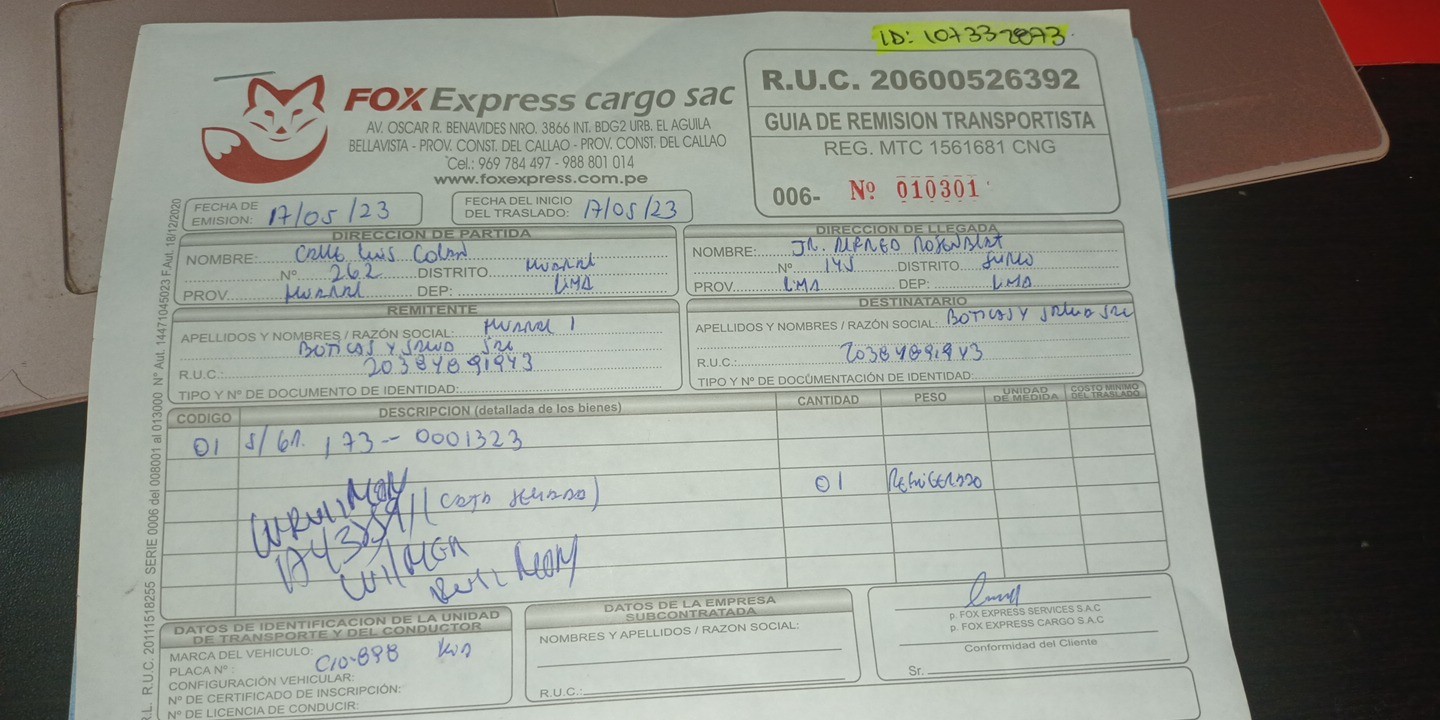 ID: 107332873
FOX Express cargo sac
AV. OSCAR R. BENAVIDES NRO. 3866 INT. BDG2 URB. EL AGUILA
BELLAVISTA - PROV. CONST. DEL CALLAO - PROV. CONST. DEL CALLAO
Cel.: 969 784 497 - 988 801 014
www.foxexpress.com.pe
R.U.C. 20600526392
GUIA DE REMISION TRANSPORTISTA
REG. MTC 1561681 CNG
006- Nº 010301
FECHA DE EMISION: 17/05/23
FECHA DEL INICIO DEL TRASLADO: 17/05/23
DIRECCION DE PARTIDA
NOMBRE: Calle Luis Colan
Nº 262 DISTRITO Huaral
PROV. Huaral DEP: LIMA
DIRECCION DE LLEGADA
NOMBRE: JR. ALFREDO ROSENBLAT
Nº 145 DISTRITO SURCO
PROV. LIMA DEP: LIMA
REMITENTE
APELLIDOS Y NOMBRES / RAZÓN SOCIAL: HUARAL 1
BOTICAS Y SALUD SRL
R.U.C.: 20384891943
TIPO Y Nº DE DOCUMENTO DE IDENTIDAD:
DESTINATARIO
APELLIDOS Y NOMBRES / RAZÓN SOCIAL: BOTICAS Y SALUD SRL
R.U.C.: 20384891943
TIPO Y Nº DE DOCUMENTACIÓN DE IDENTIDAD:
CODIGO DESCRIPCION (detallada de los bienes) CANTIDAD PESO UNIDAD DE MEDIDA COSTO MINIMO DEL TRASLADO
01 S/GR. 173-0001323
01 Refrigerado
WILMER
DATOS DE IDENTIFICACION DE LA UNIDAD
DE TRANSPORTE Y DEL CONDUCTOR
MARCA DEL VEHICULO: Kia
PLACA Nº: C10-898
CONFIGURACIÓN VEHICULAR:
Nº DE CERTIFICADO DE INSCRIPCIÓN:
Nº DE LICENCIA DE CONDUCIR:
DATOS DE LA EMPRESA
SUBCONTRATADA
NOMBRES Y APELLIDOS / RAZON SOCIAL:
R.U.C.:
p. FOX EXPRESS SERVICES S.A.C
p. FOX EXPRESS CARGO S.A.C
Conformidad del Cliente
Sr.
R.L. R.U.C. 20111518255 SERIE 0006 del 008001 al 013000 Nº Aut. 14471045023 F.Aut. 18/12/2020